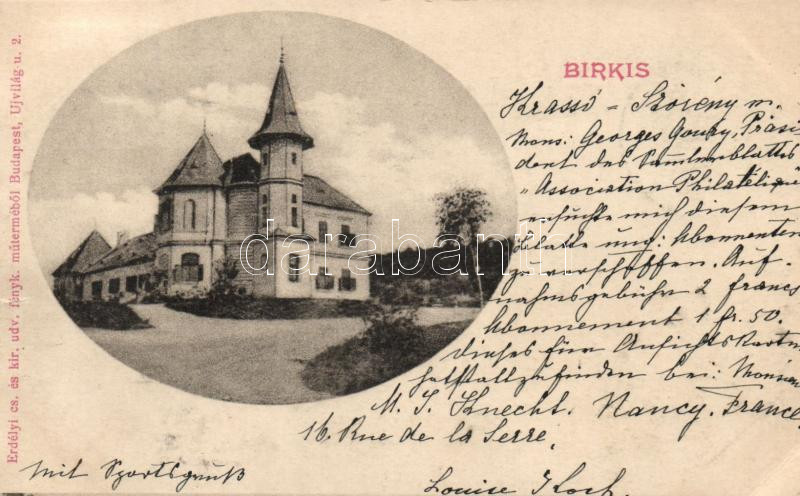 BIRKIS
Krassó-Szörény m.
Mons: Georges Goury, Präsi-
dent des Samlerblattes
"Association Philatélique
ersuchte mich diesem
Blatte ung: Abonnenten
zu verschaffen. Auf-
nahmsgebühr 2 francs
Abonnement 1 fr. 50.
dieses für Ansichtskarten
bei: Monsieur
M. J. Knecht. Nancy. France
16. Rue de la Serre.
Mit Sportsgruß
Louise Koch
Erdélyi cs. és kir. udv. fényk. műterméből Budapest, Ujvilág u. 2.
darabanth